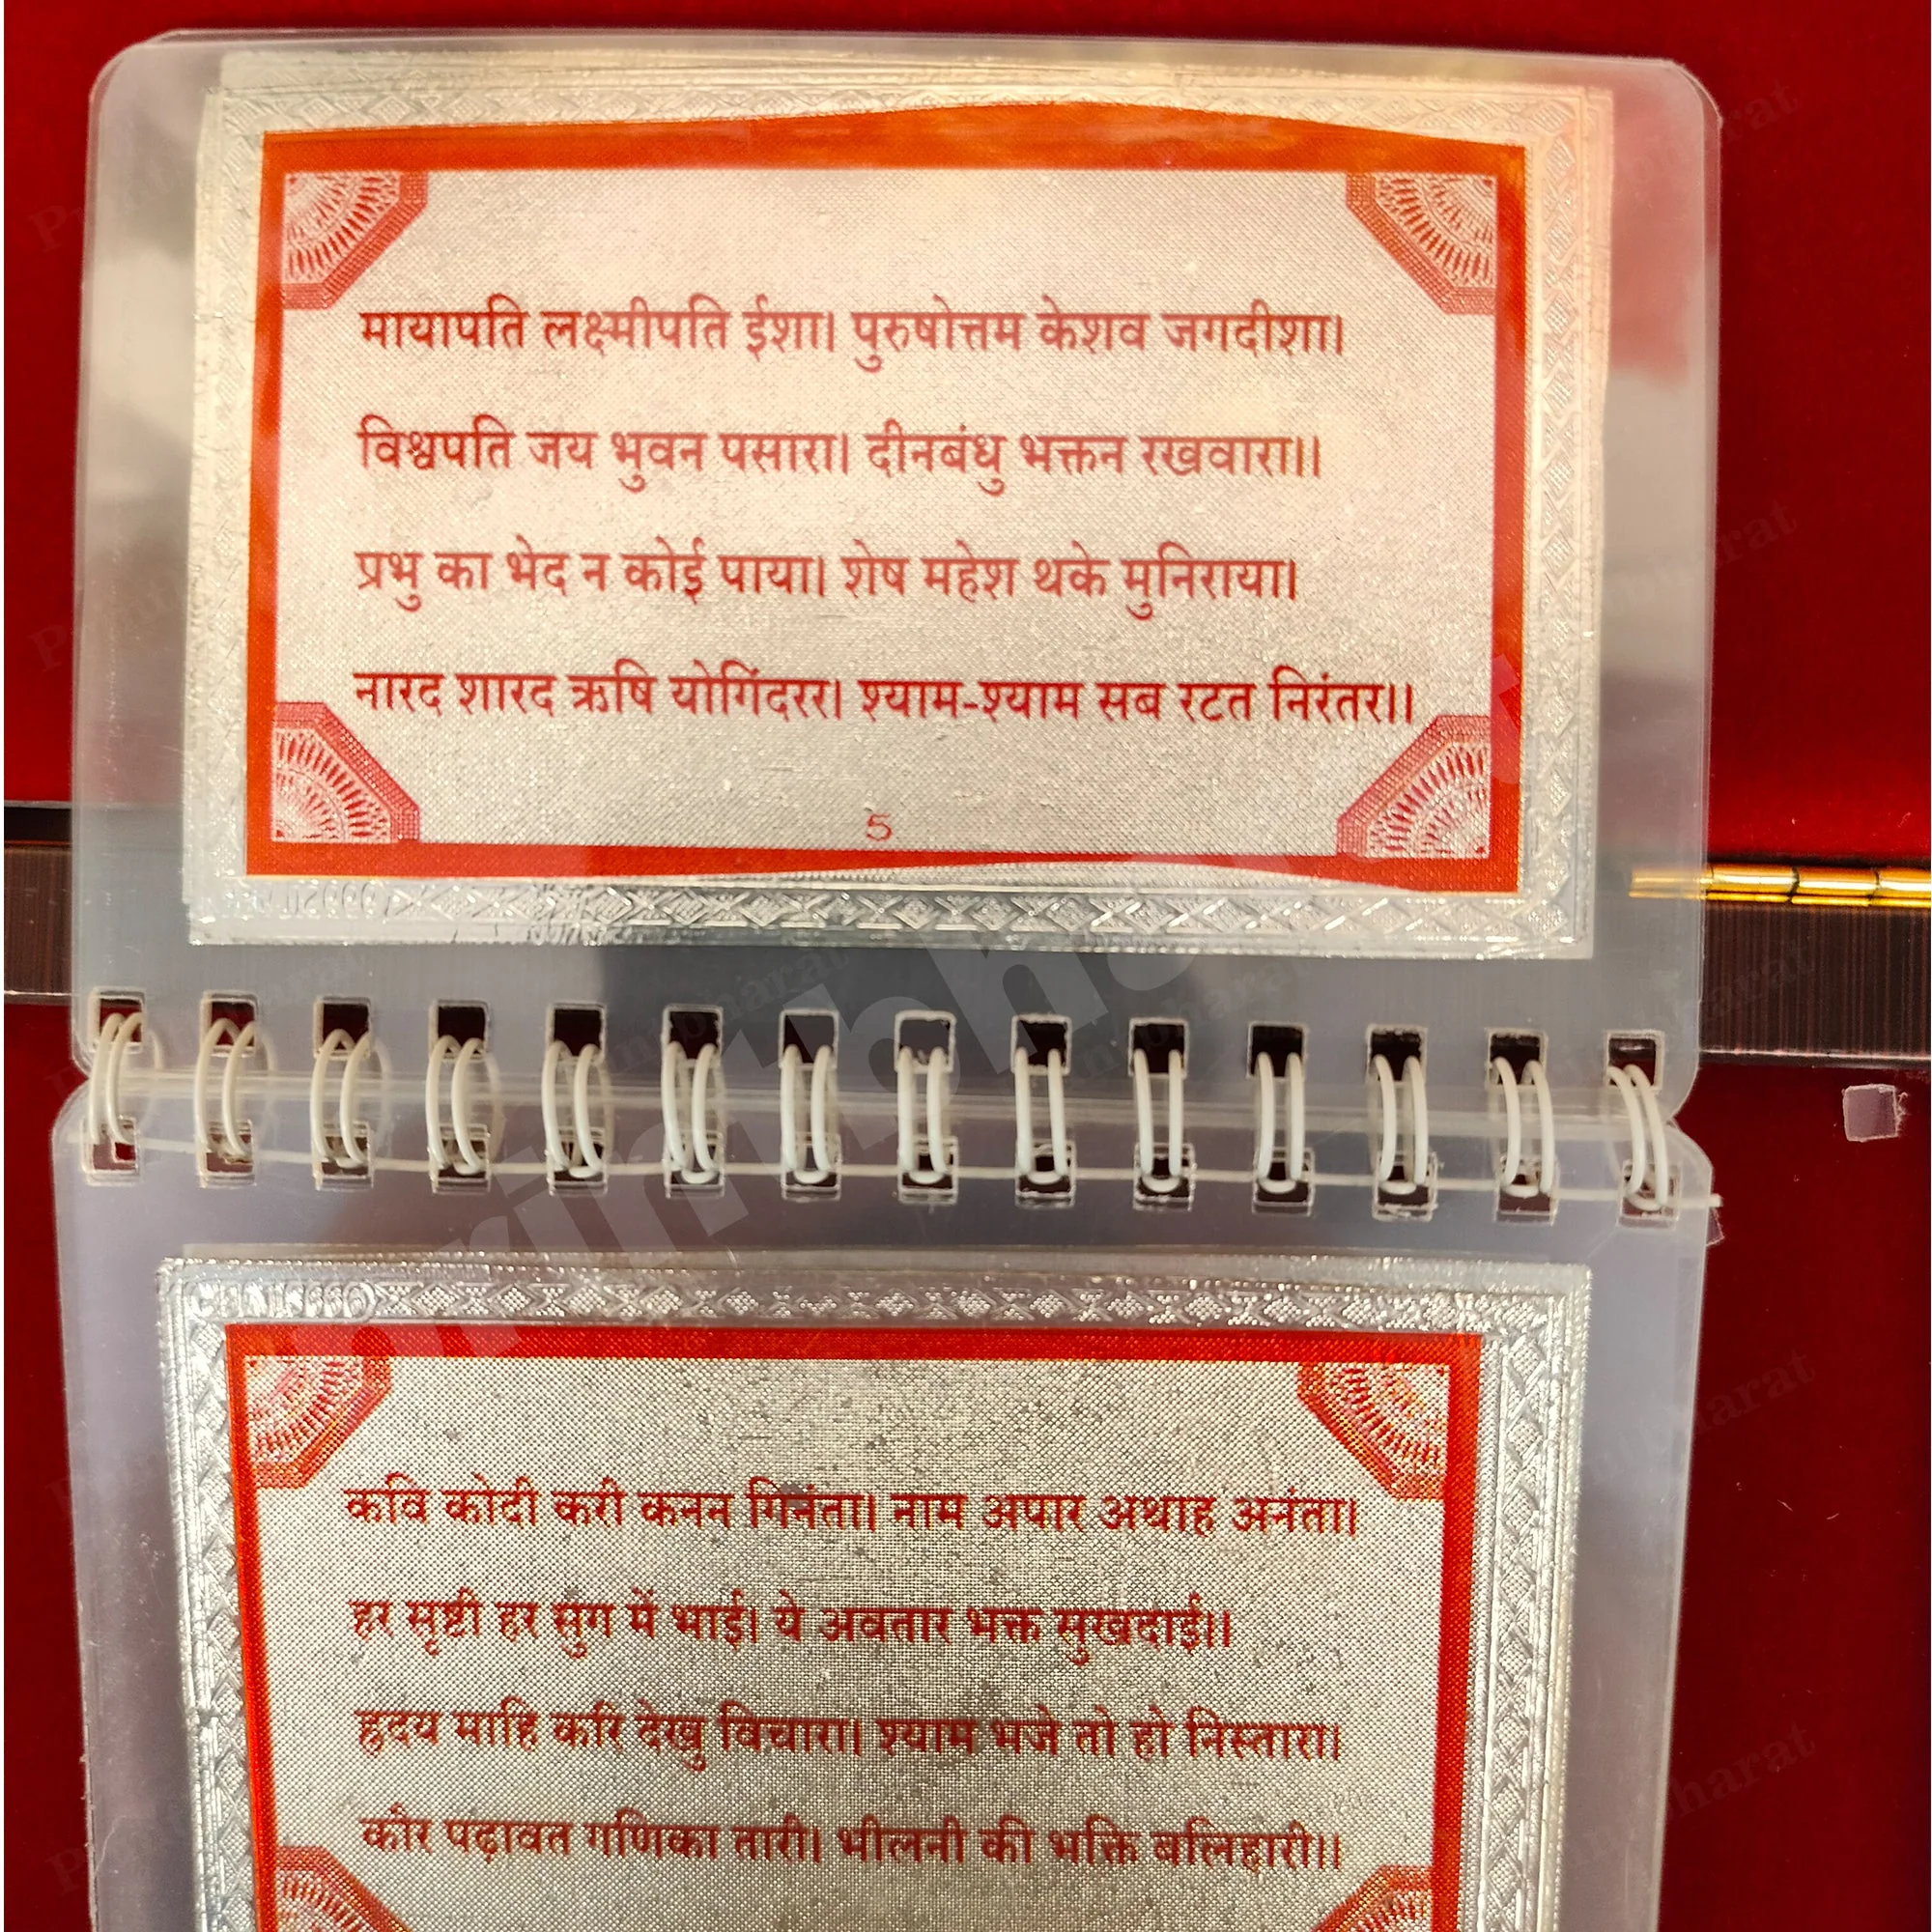 मायापति लक्ष्मीपति ईशा। पुरुषोत्तम केशव जगदीशा।
विश्वपति जय भुवन पसारा। दीनबंधु भक्तन रखवारा।।
प्रभु का भेद न कोई पाया। शेष महेश थके मुनिराया।
नारद शारद ऋषि योगिंदरर। श्याम-श्याम सब रटत निरंतर।।
5
कवि कोदी करी कनन गिनंता। नाम अपार अथाह अनंता।
हर सृष्टी हर सुंग में भाई। ये अवतार भक्त सुखदाई।।
हृदय माहि करि देखु विचारा। श्याम भजे तो हो निस्तारा।
कौर पढ़ावत गणिका तारी। भीलनी की भक्ति बलिहारी।।